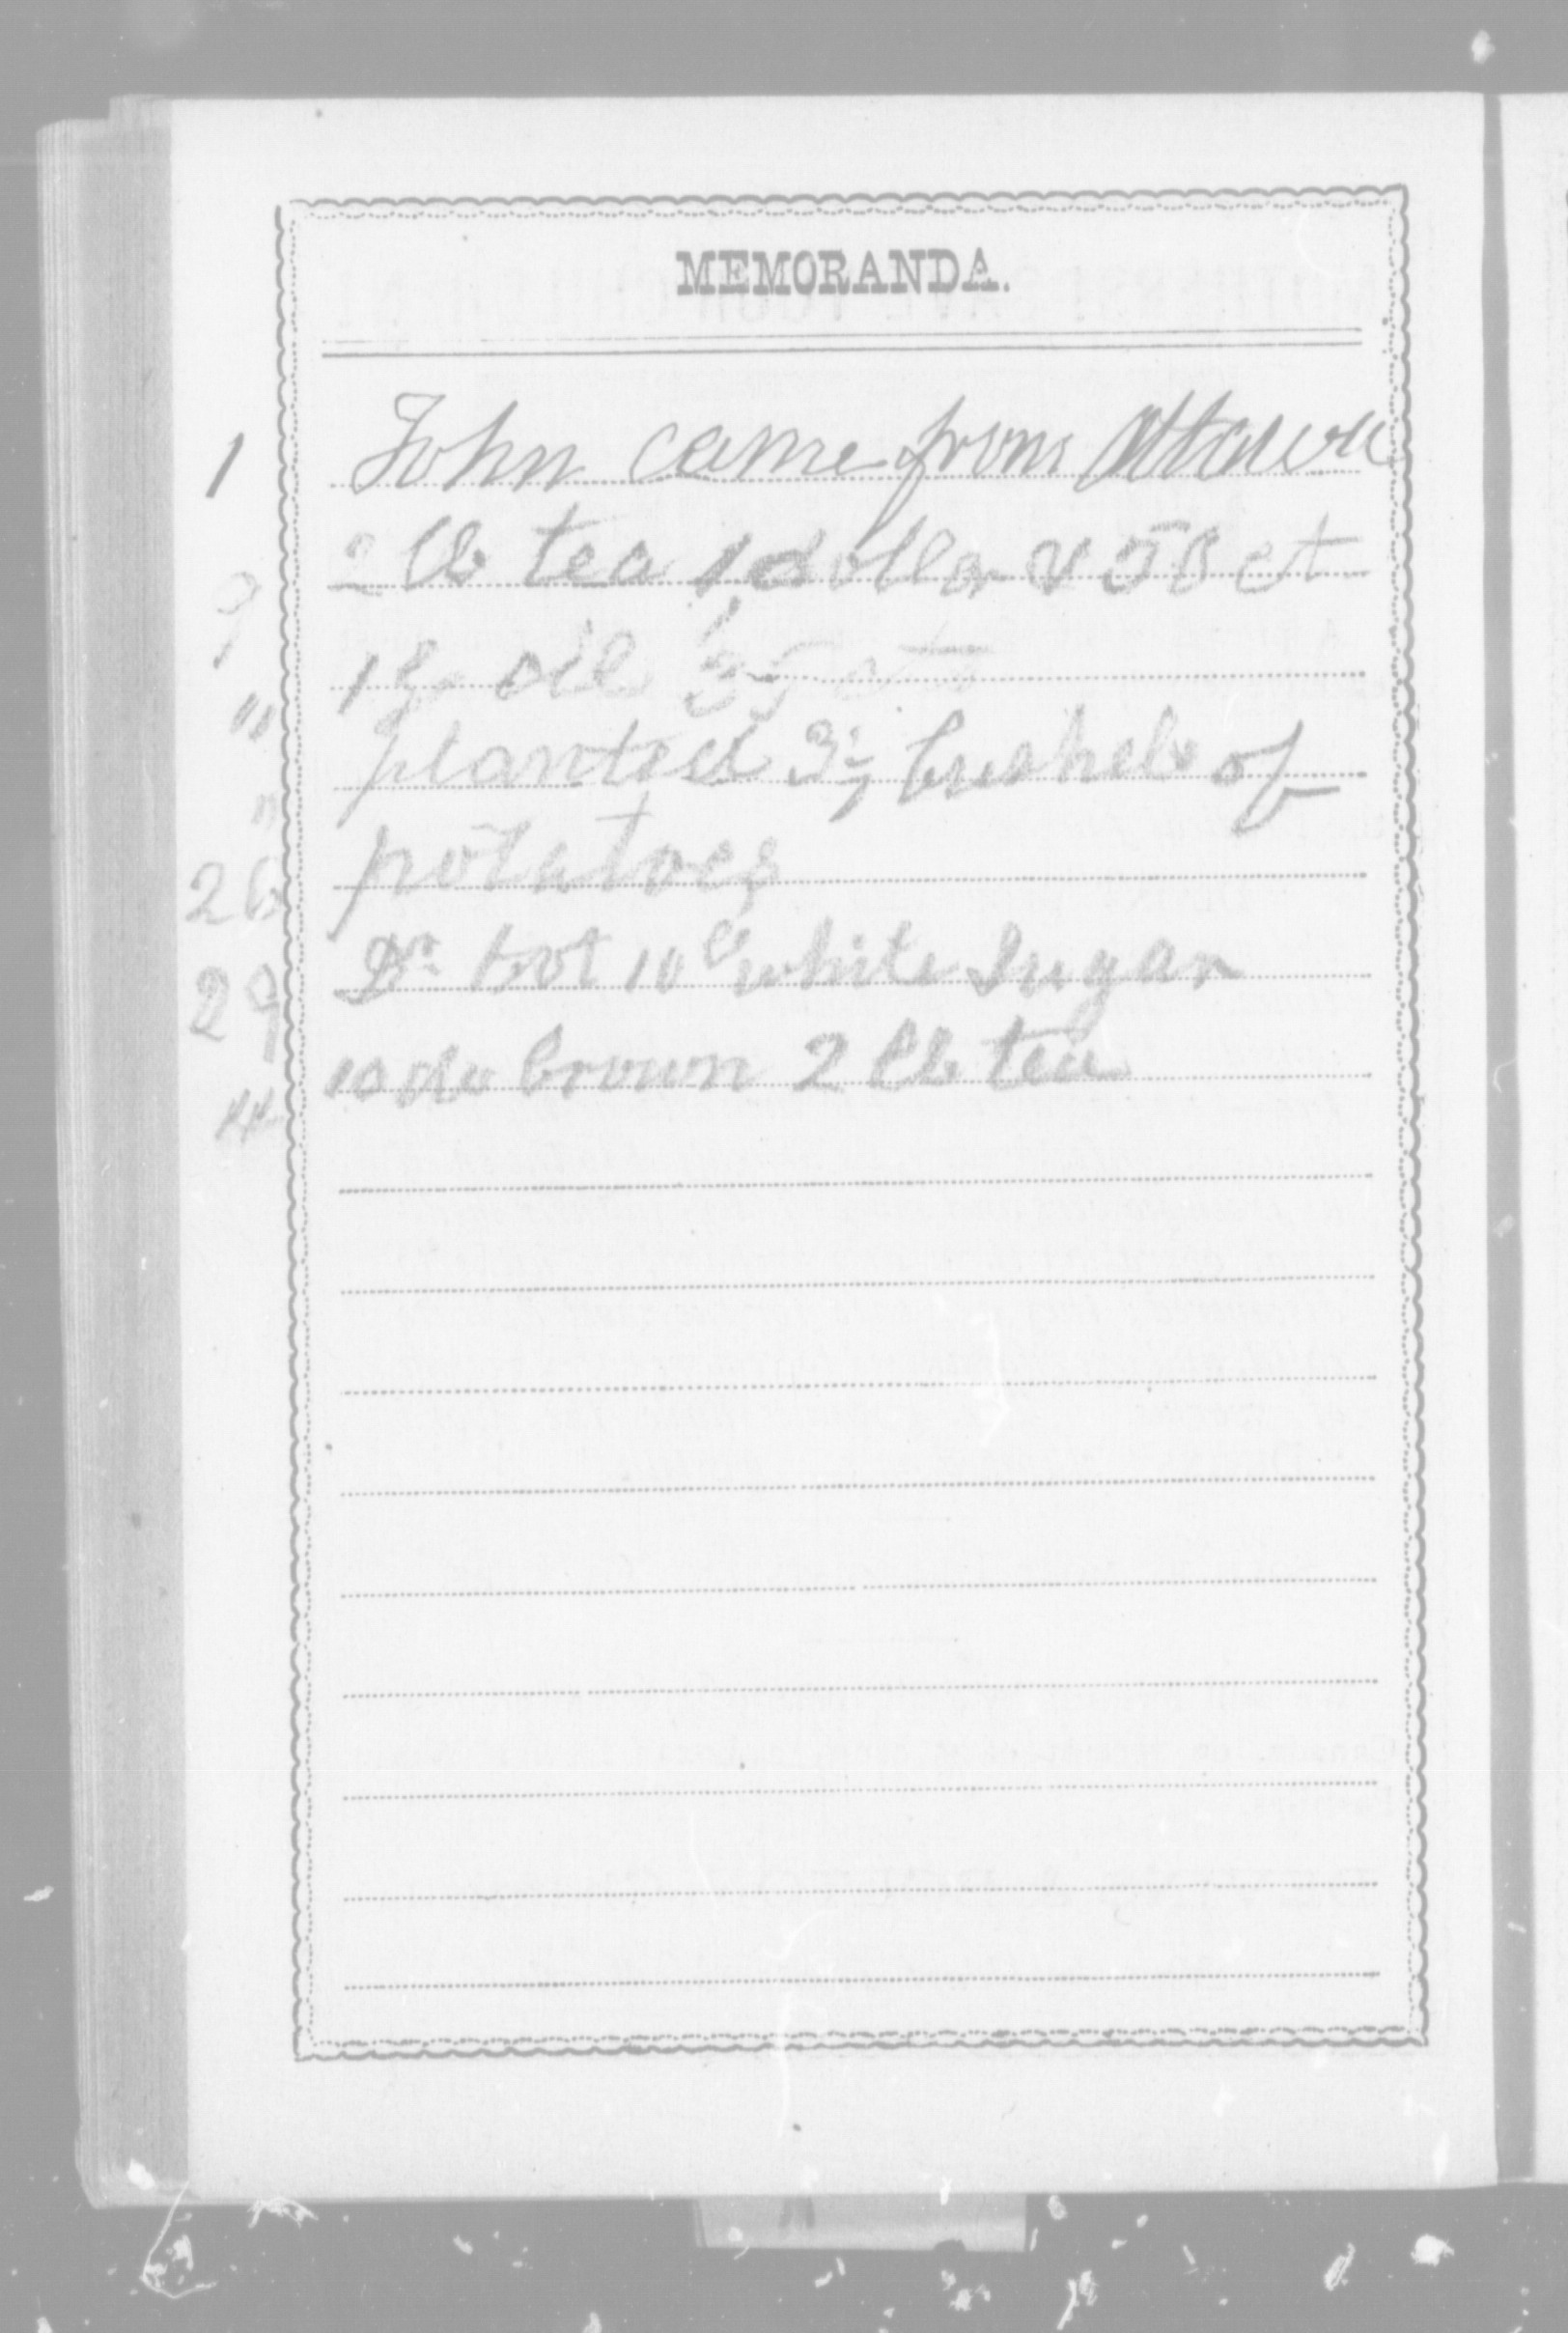 MEMORANDA.
1 John came from Ottawa
9 2 lb tea 1 dollar
" 1 g oil 25 cts
" planted 3½ bushels of
26 potatoes
29 bot 10 lb white sugar
" 10 do brown 2 lb tea